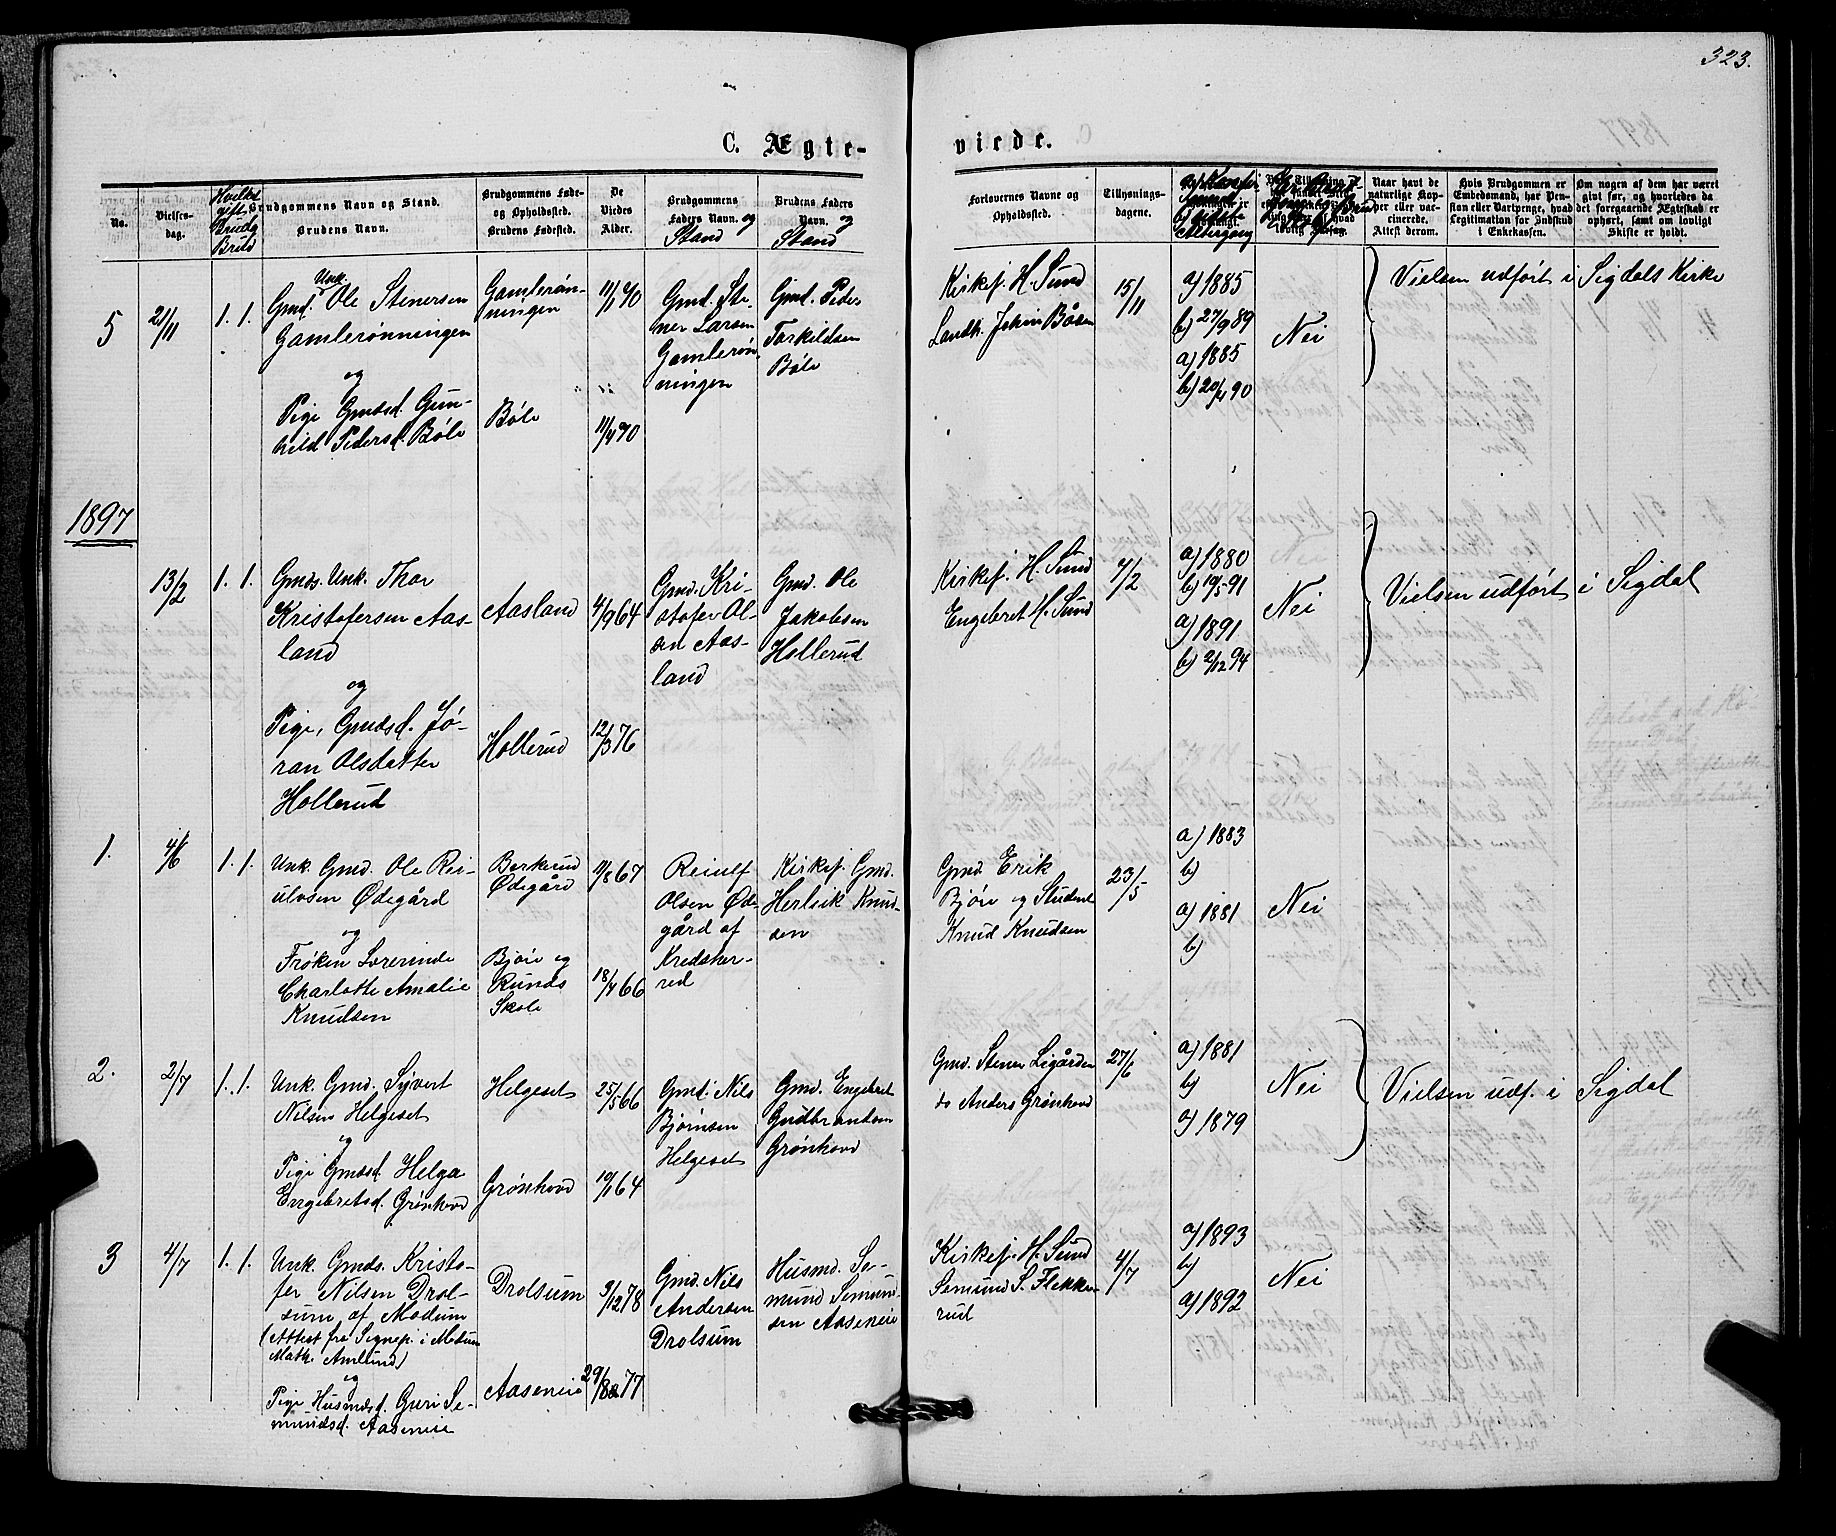 323.
C. Ægte-
viede.
No.
Vielses-
dag.
Hvilket
gift
Brudg
Brud
Brudgommens Navn og Stand.
Brudens Navn.
Brudgommens Føde-
og Opholdssted.
Brudens Fødested.
De
Viedes
Alder.
Brudgommens
Faders Navn. og
Stand
Brudens Faders
Navn. og
Stand
Forlovernes Navne og
Opholdssted.
Tillysnings-
dagene.
Naar havt de
naturlige Kop-
per eller vac-
cinerede.
Attest derom.
Hvis Brudgommen er
Embedsmand, har Pen-
sion eller Vartpenge, hvad
Legitimation for Indskud
i Enkekassen.
Om nogen af dem har været
givt før, og hvorledes da
det foregaaende Ægteskab er
ophørt, samt om lovligt
Skifte er holdt.
5
21/11
1. 1.
Unk.
Gmd. Ole Stenersen
Gamlerønningen
og
Pige Gmdsd. Gun-
hild Pedersd. Bøle
Gamlerøn-
ningen
Bøle
11/1 70
11/4 70
Gmd. Ste-
ner Larsen
Gamlerøn
ningen
Gmd. Peder
Torkildsen
Bøle
Kirkesj. H. Sund
Landh. Jokim Bøen
15/11
a) 1885
b) 27/9 89
a) 1885
b) 20/4 90
Nei
Vielsen udført i Sigdals Kirke
1897
13/2
1. 1.
Gmds. Unk. Thor
Kristofersen Aas-
land
og
Pige, Gmdsd. Jø-
ran Olsdatter
Hollerud
Aasland
Hollerud
4/9 64
12/3 76
Gmd. Kri-
stofer Ol-
sen Aas-
land
Gmd. Ole
Jakobsen
Hollerud
Kirkesj. H. Sund
Engebret H. Sund
7/2
a) 1880
b) 19/5 91
a) 1891
b) 2/12 94
Nei
Vielsen udført i Sigdal
1.
4/6
1. 1.
Unk. Gmd. Ole Rei-
ulvsen Ødegård
og
Frøken Lærerinde
Charlotte Amalie
Knudsen
Berkerud
Ødegård
Bjøre og
Runds
Skole
11/8 67
18/4 66
Reiulf
Olsen Øde
gård af
Kredsher-
red
Kirkesj. Gmd.
Herlsik Knud-
sen
Gmd. Erik
Bjøre og Student
Knud Knudsen
23/5
a) 1883
b)
a) 1881
b)
Nei
2.
2/7
1. 1.
Unk. Gmd. Syvert
Nilsen Helgeset
og
Pige Gmdsd. Helga
Engebretsd. Grønhovd
Helgeset
Grønhovd
25/5 66
10/1 64
Gmd. Nils
Bjørnsen
Helgeset
Gmd. Engebret
Gudbrandsen
Grønhovd
Gmd. Stener Ligården
do Anders Grønhovd
27/6
a) 1881
b)
a) 1879
Nei
Vielsen udf. i Sigdal
3
4/7
1. 1.
Unk. Gmds. Kristo-
fer Nilsen Drol-
sum af Modum
(Attest fra Sognep. i Modum
Math. Amlund)
og
Pige Husmdsd. Guri Se-
mundsd. Aaseneie
Drolsum
Aaseneie
9/12 78
29/8 77
Gmd. Nils
Andersen
Drolsum
Husmd. Se-
mund Semund-
sen Aaseneie
Kirkesj. H. Sund
Semund S. Flekke-
rud
4/7
a) 1893
b)
a) 1892
Nei